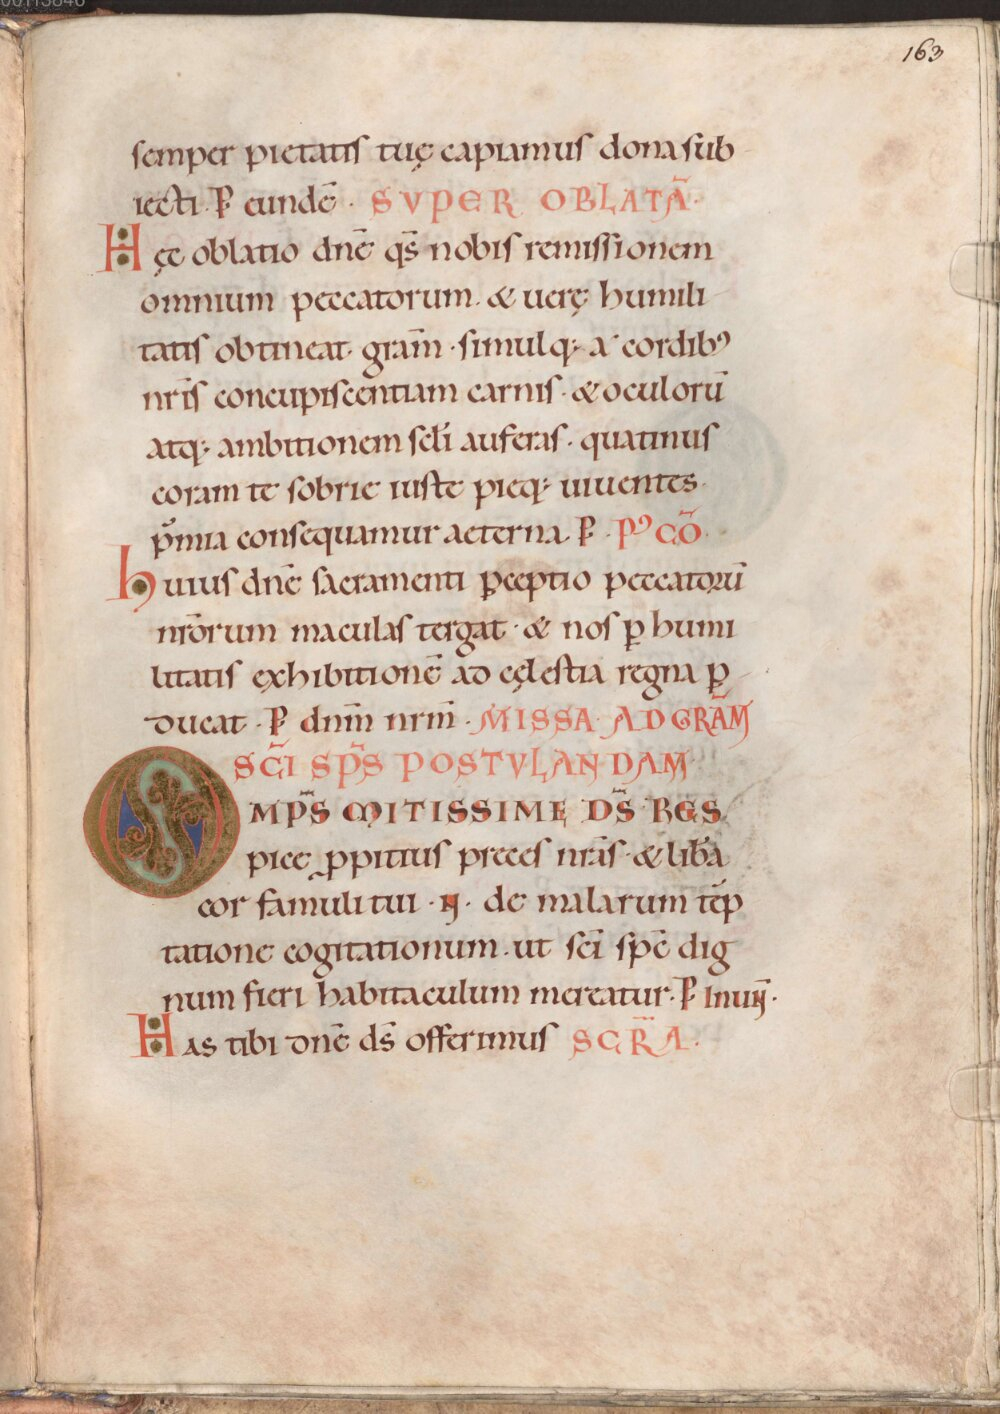 163
semper pietatis tuę capiamus dona sub
iecti. P̄ eundē. SUPER OBLATĀ.
Hęc oblatio dnē qs̄ nobis remissionem
omnium peccatorum. & uerę humili
tatis obtineat grām. simulq; a cordibꝰ
nrīs concupiscentiam carnis. & oculorū
atq; ambitionem sclī auferas. quatinus
coram te sobrie iuste pieq; uiuentes
p̄mia consequamur aeterna. P̄. Pꝰ CŌ.
huius dnē sacramenti ꝑceptio peccatorū
nrōrum maculas tergat. & nos ꝑ humi
litatis exhibitionē ad cęlestia regna ꝑ
ducat. P̄ dnm̄ nrm̄. MISSA AD GRĀM
SC̄I SP̄S POSTULANDAM
OMPS̄ MITISSIME DS̄ RES
pice ꝓpitius preces nrās. & libā
cor famuli tui .N. de malarum tēp
tatione cogitationum. ut sc̄i sp̄c dig
num fieri habitaculum mereatur. P̄ In un̄.
Has tibi dnē ds̄ offerimus SCR̄A.